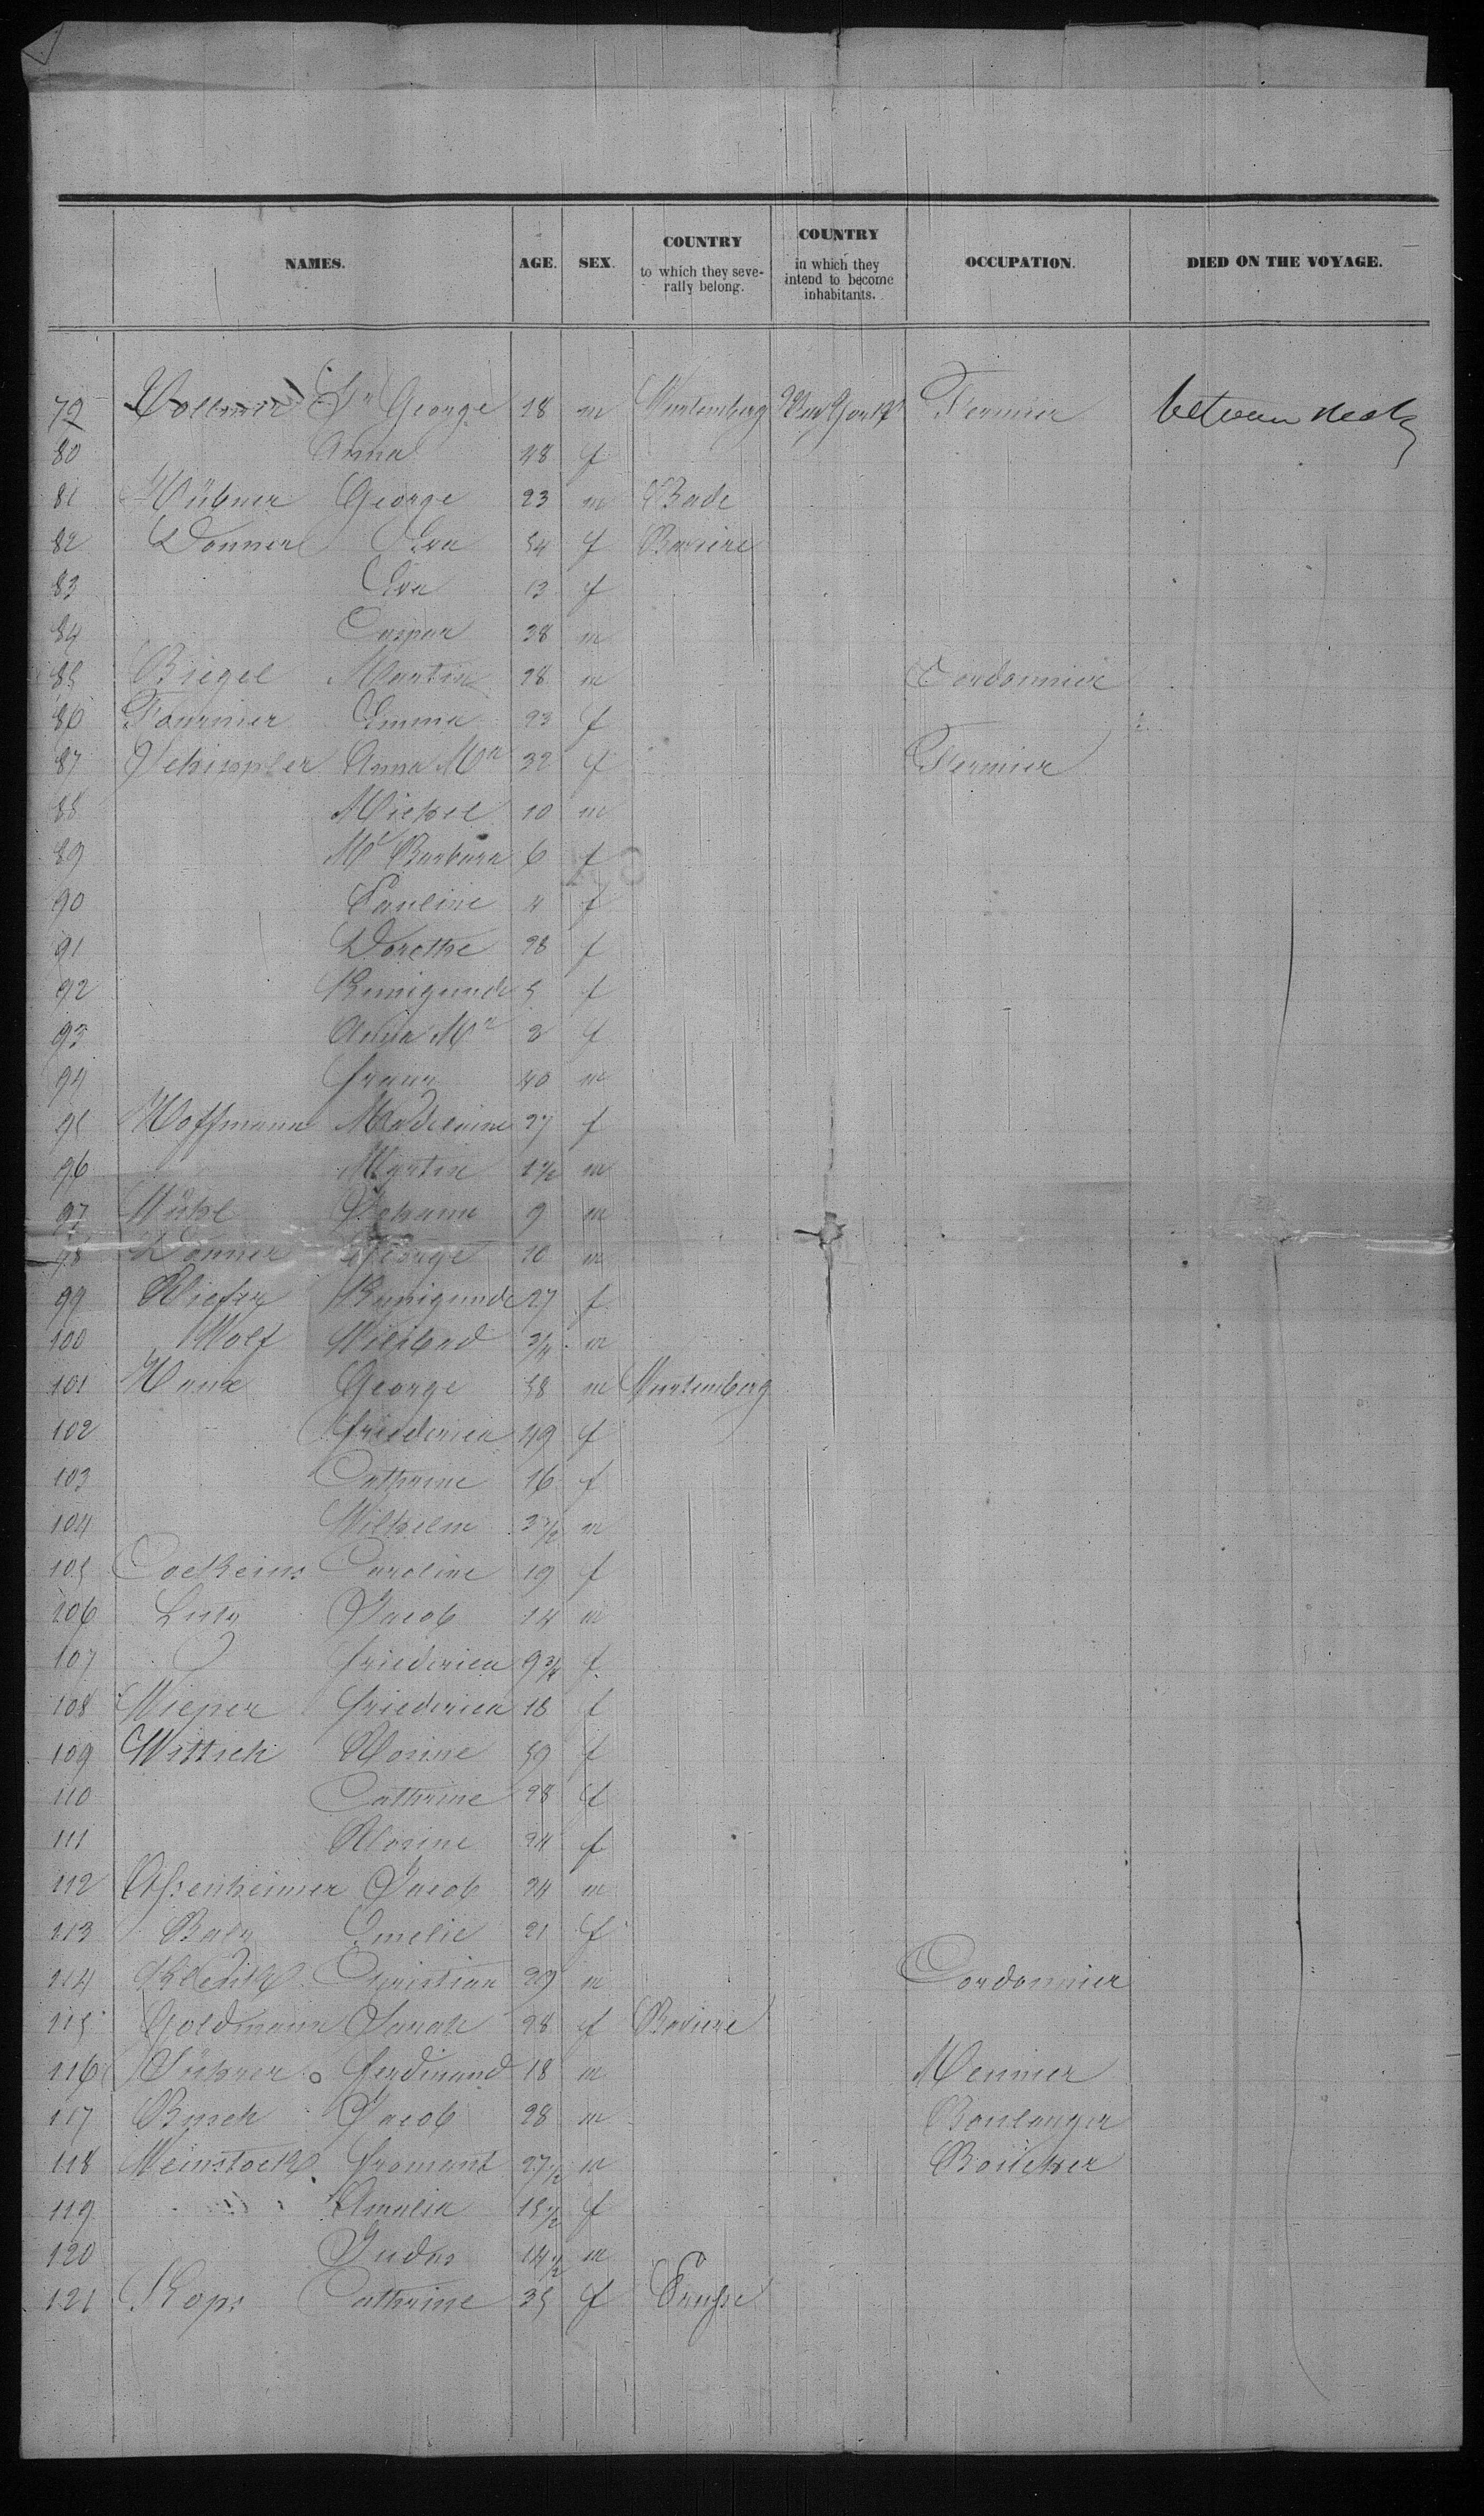 NAMES. AGE. SEX. COUNTRY to which they severally belong. COUNTRY in which they intend to become inhabitants. OCCUPATION. DIED ON THE VOYAGE.
79 Vollmer Jn George 28 m Wurtemberg New York Fermier between decks
80 Anna 48 f
81 Hübner George 23 m Bade
82 Donner Eva 54 f Baviere
83 Eva 13 f
84 Caspar 38 m
85 Biegel Martin 28 m Cordonnier
86 Fournier Emma 23 f
87 Anna Mª 32 f Fermier
88 Michel 10 m
89 Mª Barbara 6 f
90 Pauline 4 f
91 Dorothe 28 f
92 Kunigunde 5 f
93 Anna Mª 3 f
94 40 m
95 Hoffmann Madelaine 27 f
96 Martin 1 1/2 m
97 Johann 9 m
98 Donner George 10 m
99 Kunigunde 27 f
100 Wolf Wilibad 3/4 m
101 George 58 m Wurtemberg
102 Friederica 49 f
103 Cathrine 16 f
104 Wilhelm 3 1/2 m
105 Caroline 19 f
106 Lutz Jacob 14 m
107 Friederica 9 3/4 f
108 Friederica 18 f
109 Wittich Rosine 59 f
110 Cathrine 28 f
111 Rosine 24 f
112 Assenheimer Jacob 24 m
113 Balz Emelie 21 f
114 Christian 29 m Cordonnier
115 Goldmann Sarah 28 f Baviere
116 Ferdinand 18 m Meunier
117 Busch Jacob 28 m Boulanger
118 Weinstock Fromant 27 1/2 m
119 Amalia 18 1/2 f
120 Judas 14 1/2 m
121 Kops Cathrine 35 f